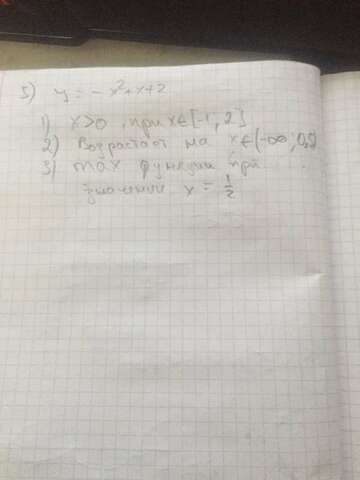 5) y = -x²+x+2
1) x>0, при x∈[-1; 2]
2) Возрастает на x∈(-∞; 0,5)
3) max функции при
значении x = 1/2